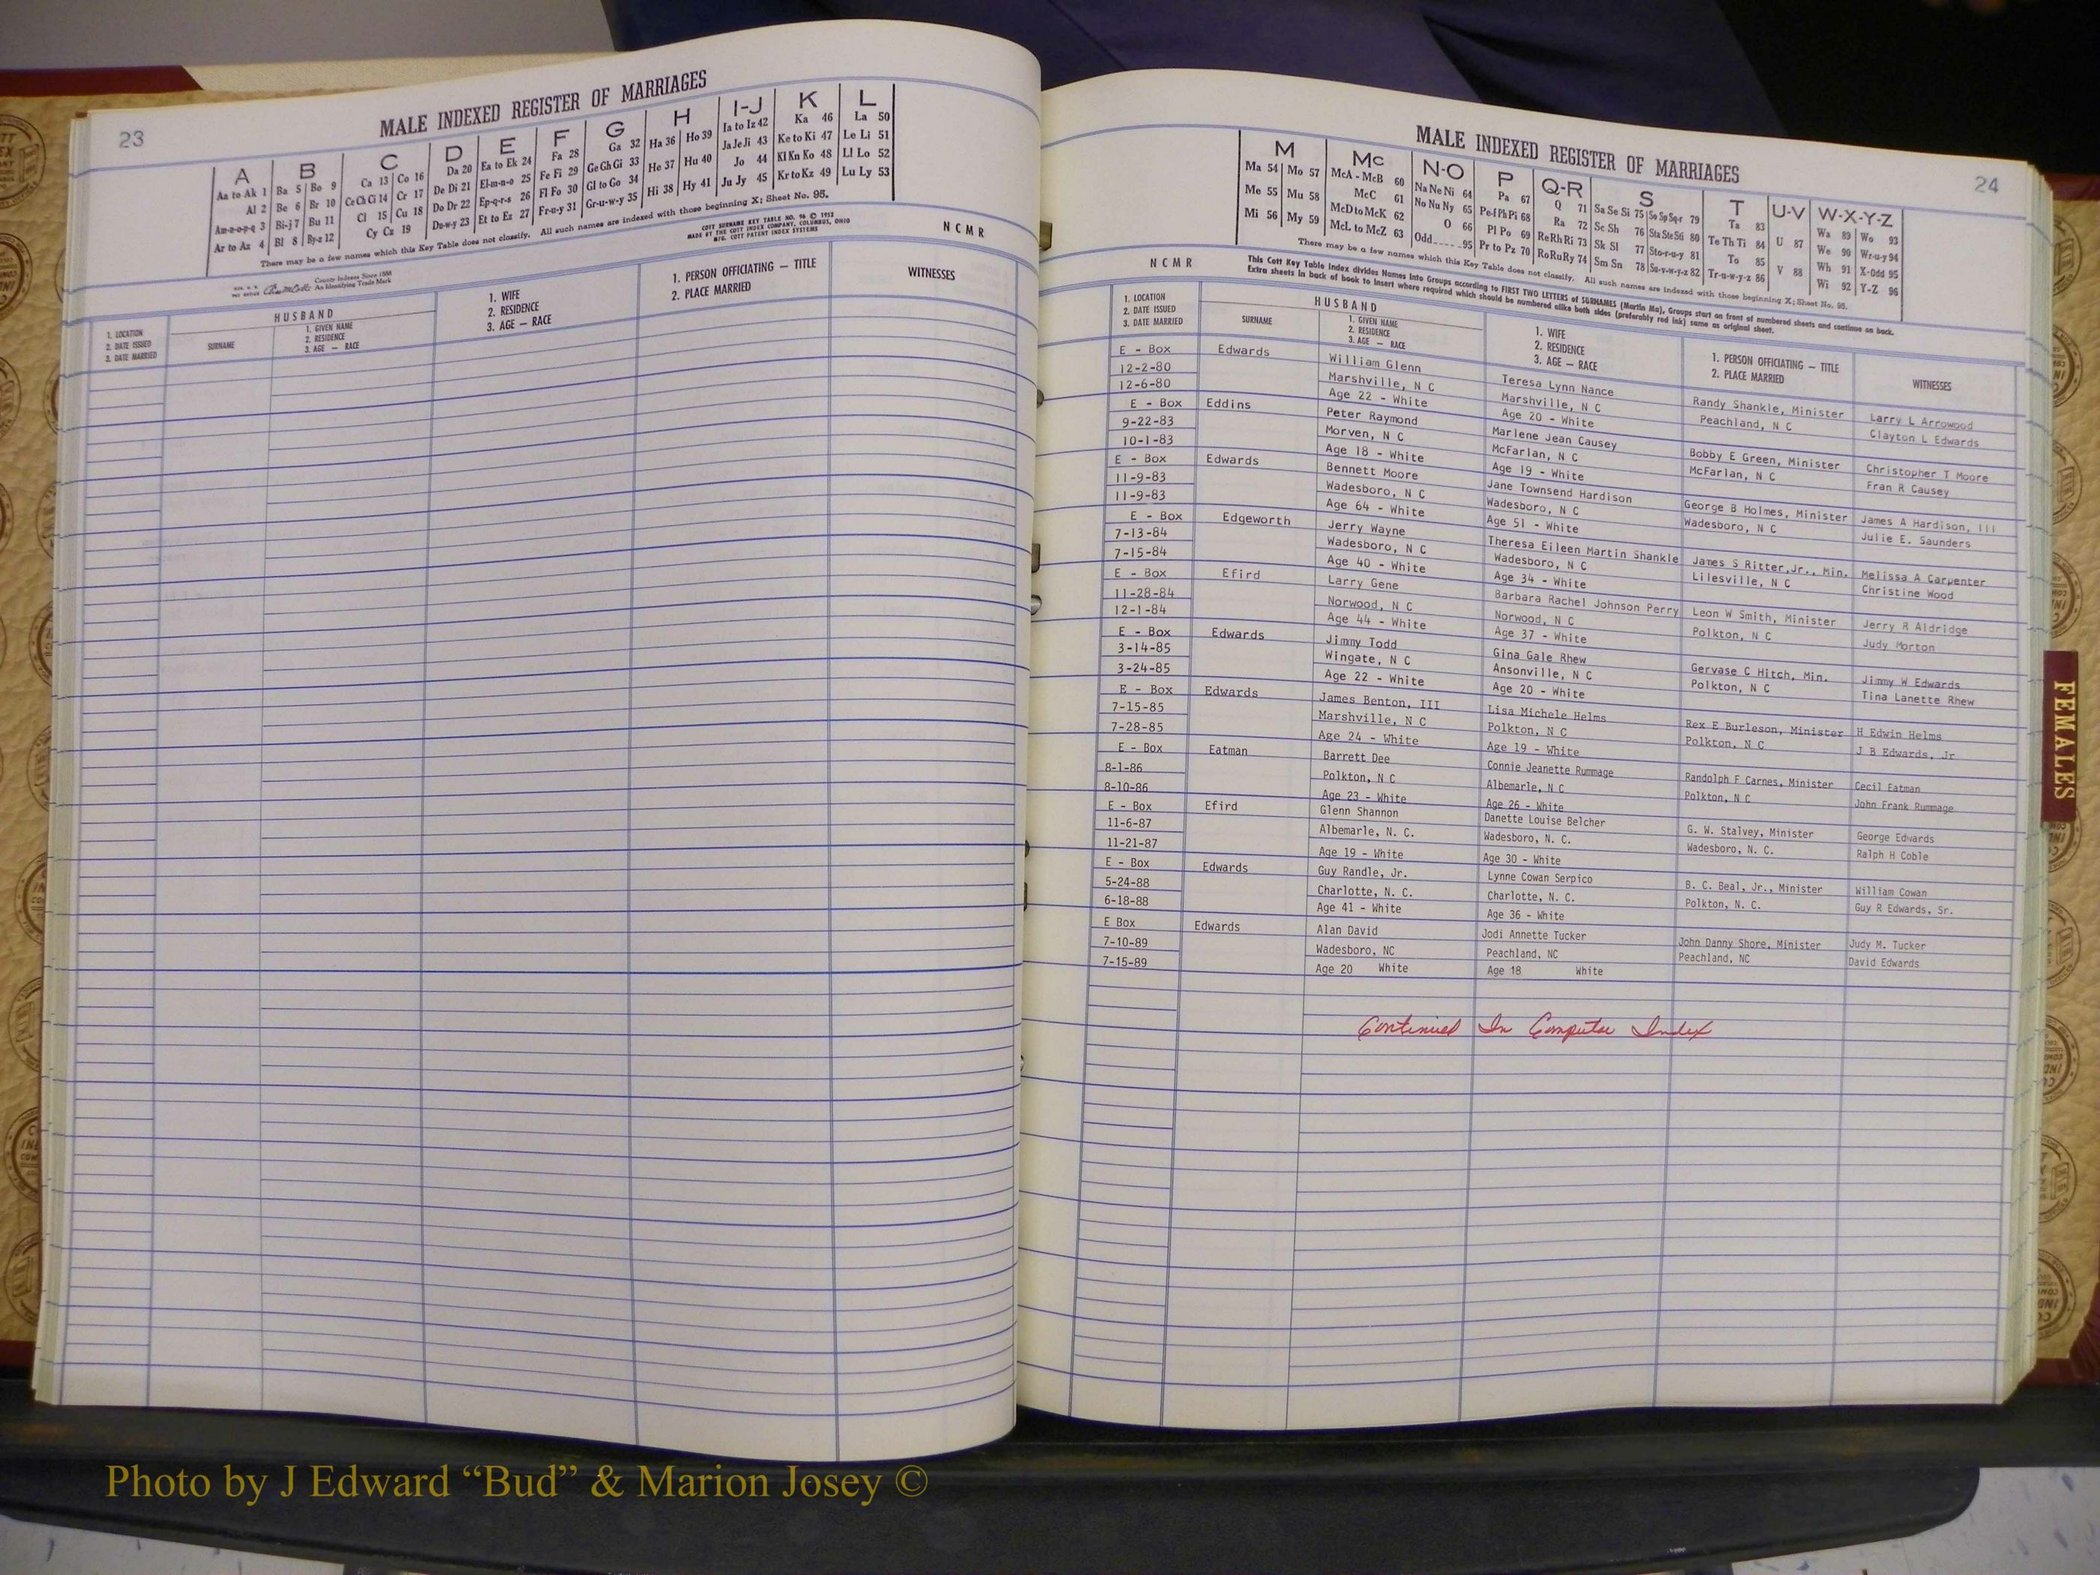 23
MALE INDEXED REGISTER OF MARRIAGES
A B C D E F G H I-J K L
Aa to Ak 1 Ba 5 Bo 9 Ca 13 Co 16 Da 20 Ea to Ek 24 Fa 28 Ga 32 Ha 36 Ho 39 Ia to Iz 42 Ka 46 La 50
Al 2 Be 6 Br 10 Ce Ch Ci 14 Cr 17 De Di 21 El-m-n-o 25 Fe Fi 29 Ge Gh Gi 33 He 37 Hu 40 Ja Je Ji 43 Ke to Ki 47 Le Li 51
Am-n-o-p-q 3 Bi-j 7 Bu 11 Cl 15 Cu 18 Do Dr 22 Ep-q-r-s 26 Fl Fo 30 Gl to Go 34 Hi 38 Hy 41 Jo 44 Kl Kn Ko 48 Ll Lo 52
Ar to Az 4 Bl 8 By-z 12 Cy Cz 19 Du-w-y 23 Et to Ez 27 Fr-u-y 31 Gr-u-w-y 35 Ju Jy 45 Kr to Kz 49 Lu Ly 53
There may be a few names which this Key Table does not classify. All such names are indexed with those beginning X; Sheet No. 95.
COTT SURNAME KEY TABLE NO. 96 © 1952
MADE BY THE COTT INDEX COMPANY, COLUMBUS, OHIO
MFG. COTT PATENT INDEX SYSTEMS
N C M R
County Indexes Since 1888
An Identifying Trade Mark
1. LOCATION
2. DATE ISSUED
3. DATE MARRIED
HUSBAND
SURNAME
1. GIVEN NAME
2. RESIDENCE
3. AGE — RACE
1. WIFE
2. RESIDENCE
3. AGE — RACE
1. PERSON OFFICIATING — TITLE
2. PLACE MARRIED
WITNESSES
MALE INDEXED REGISTER OF MARRIAGES
24
M Mc N-O P Q-R S T U-V W-X-Y-Z
Ma 54 Mo 57 McA - McB 60 Na Ne Ni 64 Pa 67 Q 71 Sa Se Si 75 So Sp Sq-r 79 Ta 83 U 87 Wa 89 Wo 93
Me 55 Mu 58 McC 61 No Nu Ny 65 Pe-f Ph Pi 68 Ra 72 Sc Sh 76 Sta Ste Sti 80 Te Th Ti 84 V 88 We 90 Wr-u-y 94
Mi 56 My 59 McD to McK 62 O 66 Pl Po 69 Re Rh Ri 73 Sk Sl 77 Sto-r-u-y 81 To 85 Wh 91 X-Odd 95
McL to McZ 63 Odd 95 Pr to Pz 70 Ro Ru Ry 74 Sm Sn 78 Su-v-w-y-z 82 Tr-u-w-y-z 86 Wi 92 Y-Z 96
There may be a few names which this Key Table does not classify. All such names are indexed with those beginning X; Sheet No. 95.
N C M R
This Cott Key Table Index divides Names into Groups according to FIRST TWO LETTERS of SURNAMES (Martin Ma). Groups start on front of numbered sheets and continue on back.
Extra sheets in back of book to insert where required which should be numbered alike both sides (preferably red ink) same as original sheet.
1. LOCATION
2. DATE ISSUED
3. DATE MARRIED
HUSBAND
SURNAME
1. GIVEN NAME
2. RESIDENCE
3. AGE — RACE
1. WIFE
2. RESIDENCE
3. AGE — RACE
1. PERSON OFFICIATING — TITLE
2. PLACE MARRIED
WITNESSES
E - Box Edwards William Glenn Teresa Lynn Nance Randy Shankle, Minister Larry L Arrowood
12-2-80 Marshville, N C Marshville, N C Peachland, N C Clayton L Edwards
12-6-80 Age 22 - White Age 20 - White
E - Box Eddins Peter Raymond Marlene Jean Causey Bobby E Green, Minister Christopher T Moore
9-22-83 Morven, N C McFarlan, N C McFarlan, N C Fran R Causey
10-1-83 Age 18 - White Age 19 - White
E - Box Edwards Bennett Moore Jane Townsend Hardison George B Holmes, Minister James A Hardison, III
11-9-83 Wadesboro, N C Wadesboro, N C Wadesboro, N C Julie E. Saunders
11-9-83 Age 64 - White Age 51 - White
E - Box Edgeworth Jerry Wayne Theresa Eileen Martin Shankle James S Ritter,Jr., Min. Melissa A Carpenter
7-13-84 Wadesboro, N C Wadesboro, N C Lilesville, N C Christine Wood
7-15-84 Age 40 - White Age 34 - White
E - Box Efird Larry Gene Barbara Rachel Johnson Perry Leon W Smith, Minister Jerry R Aldridge
11-28-84 Norwood, N C Norwood, N C Polkton, N C Judy Morton
12-1-84 Age 44 - White Age 37 - White
E - Box Edwards Jimmy Todd Gina Gale Rhew Gervase C Hitch, Min. Jimmy W Edwards
3-14-85 Wingate, N C Ansonville, N C Polkton, N C Tina Lanette Rhew
3-24-85 Age 22 - White Age 20 - White
E - Box Edwards James Benton, III Lisa Michele Helms Rex E Burleson, Minister H Edwin Helms
7-15-85 Marshville, N C Polkton, N C Polkton, N C J B Edwards, Jr
7-28-85 Age 24 - White Age 19 - White
E - Box Eatman Barrett Dee Connie Jeanette Rummage Randolph F Carnes, Minister Cecil Eatman
8-1-86 Polkton, N C Albemarle, N C Polkton, N C John Frank Rummage
8-10-86 Age 23 - White Age 26 - White
E - Box Efird Glenn Shannon Danette Louise Belcher G. W. Stalvey, Minister George Edwards
11-6-87 Albemarle, N. C. Wadesboro, N. C. Wadesboro, N. C. Ralph H Coble
11-21-87 Age 19 - White Age 30 - White
E - Box Edwards Guy Randle, Jr. Lynne Cowan Serpico B. C. Beal, Jr., Minister William Cowan
5-24-88 Charlotte, N. C. Charlotte, N. C. Polkton, N. C. Guy R Edwards, Sr.
6-18-88 Age 41 - White Age 36 - White
E Box Edwards Alan David Jodi Annette Tucker John Danny Shore, Minister Judy M. Tucker
7-10-89 Wadesboro, NC Peachland, NC Peachland, NC David Edwards
7-15-89 Age 20 White Age 18 White
Continued In Computer Index
FEMALES
Photo by J Edward “Bud” & Marion Josey ©